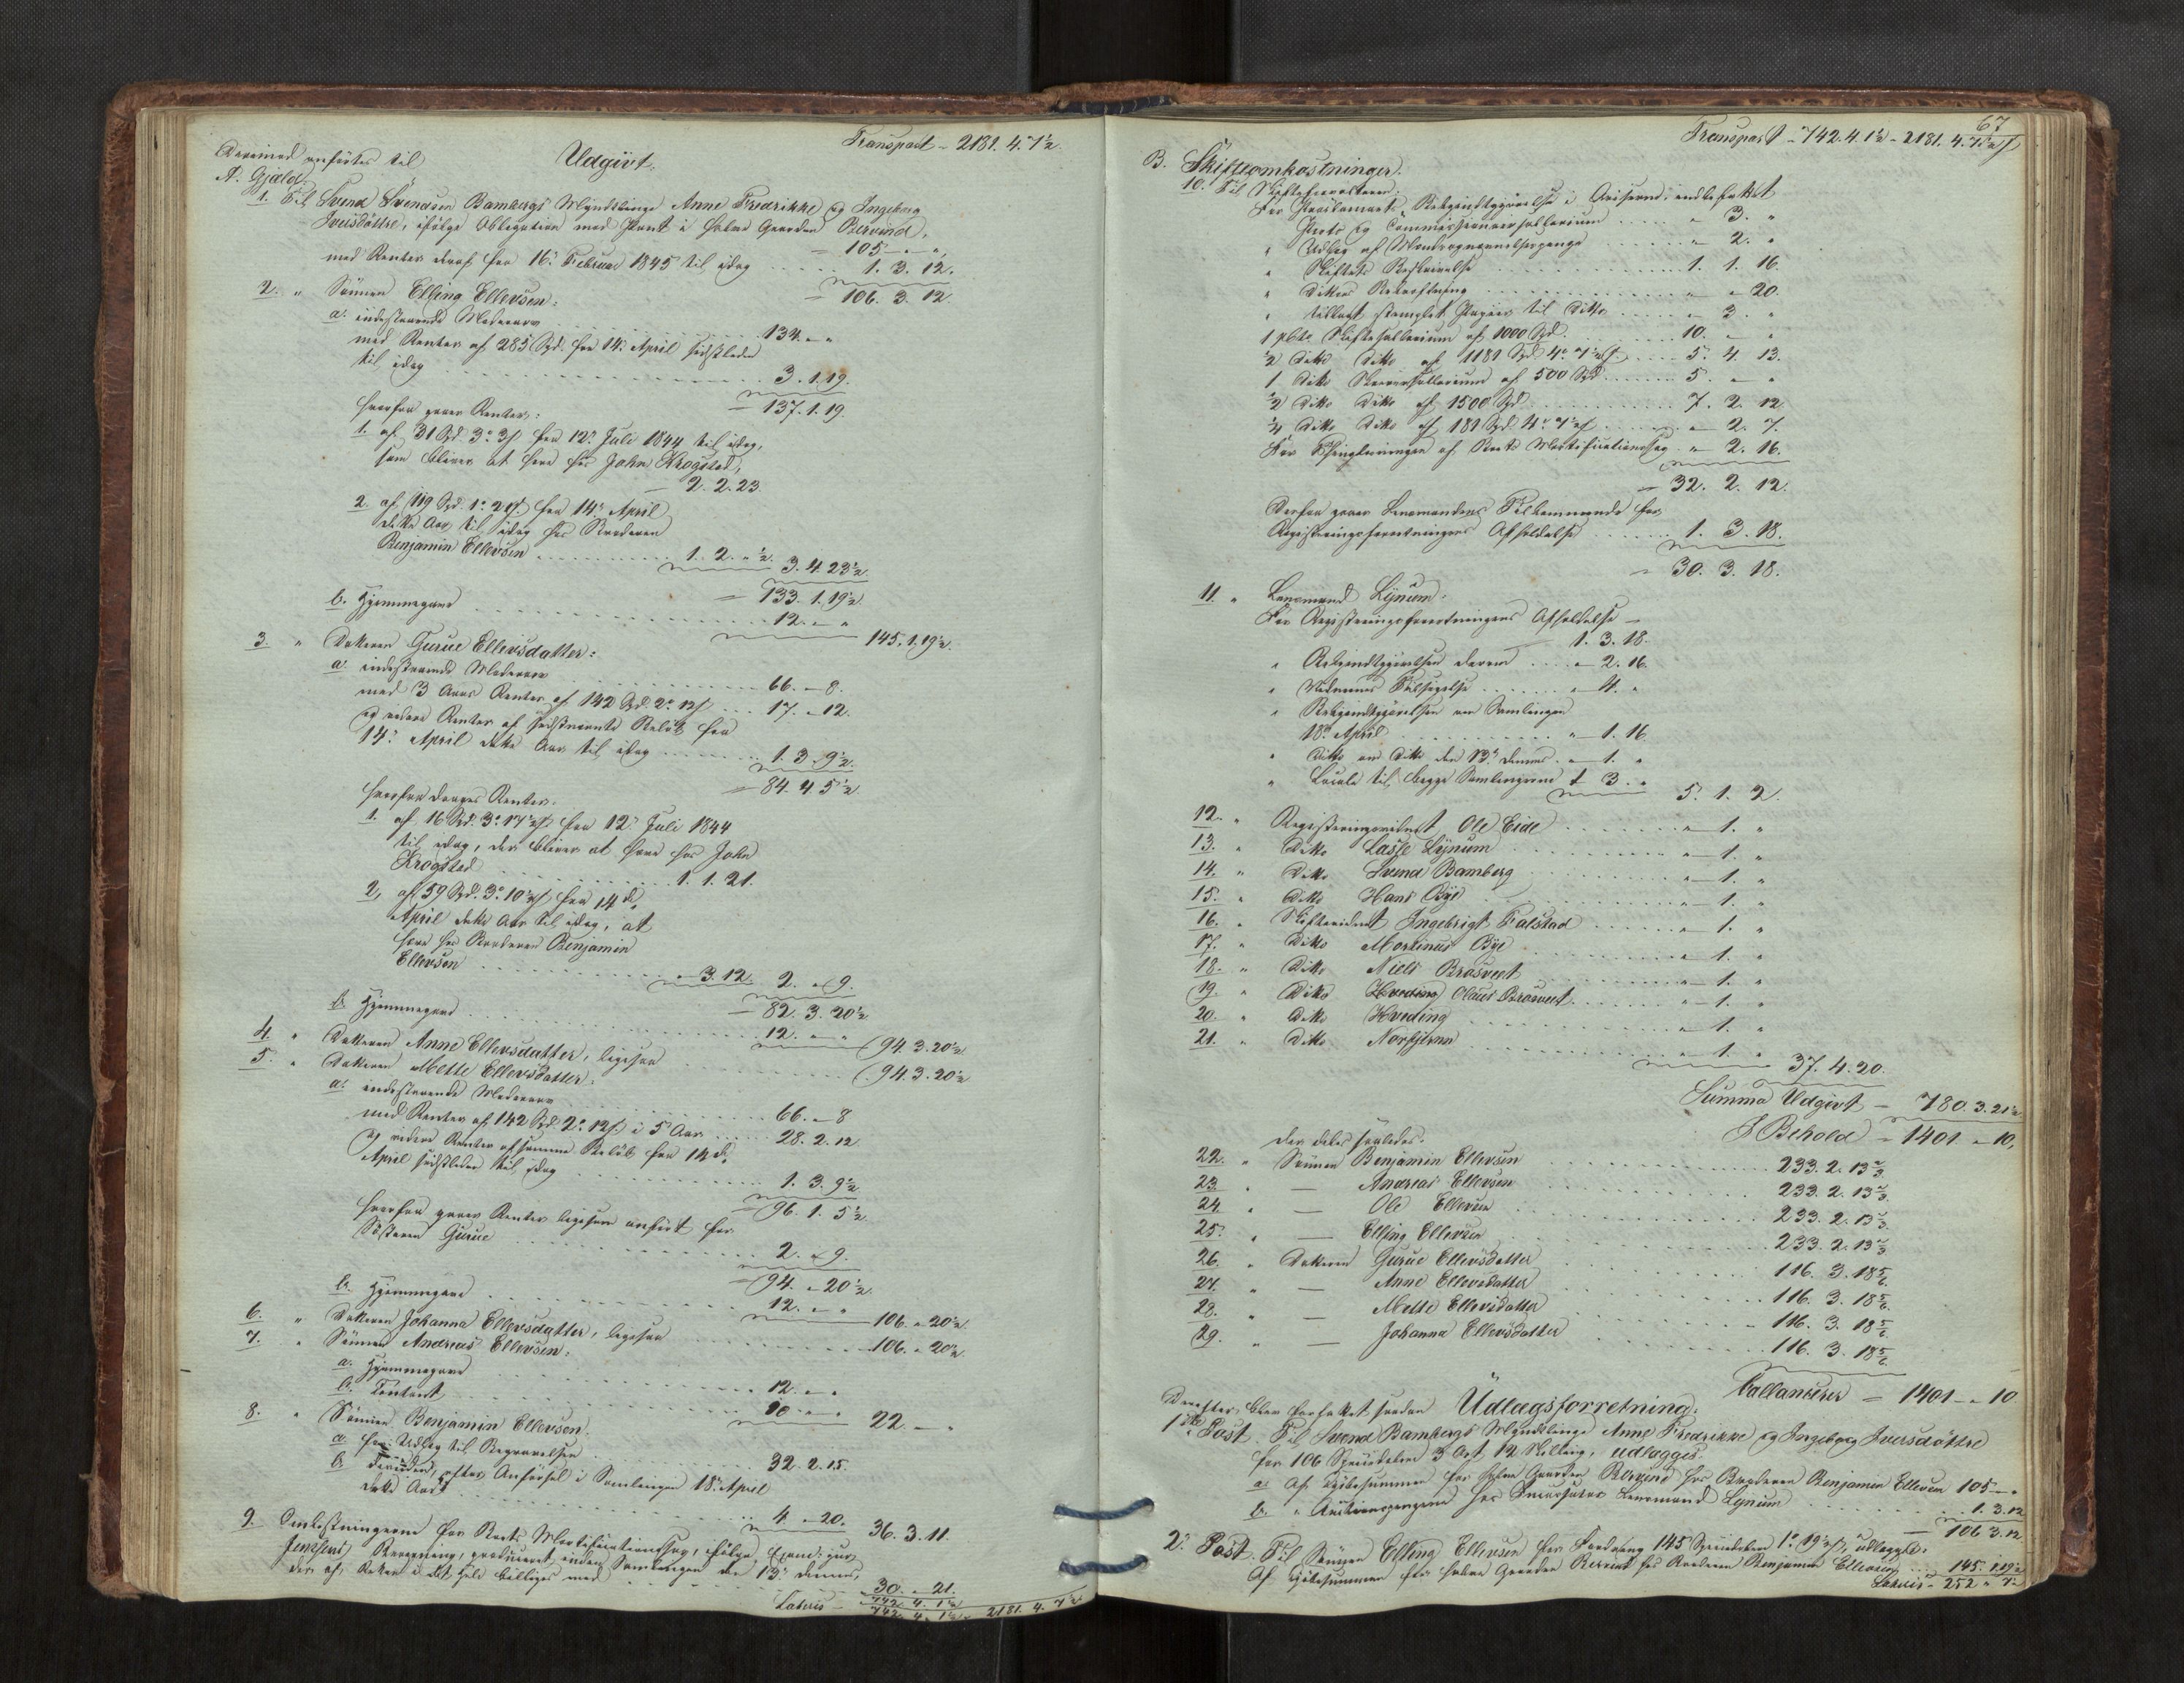 Transport - 2181. 4. 7½.
Derimod anförtes til
Udgivt.
A. Gjæld.
1. Til Svend Svendsen Bambergs Myndlinge Anne Fredrikke og Ingeborg
Iversdöttre, ifölge Obligation med Pant i halve Gaarden Bervend,
105. - „
med Renter deraf fra 16de Februar 1845 til idag 1. 3. 12.
106. 3. 12.
2. „ Sönnen Elling Ellevsen:
a. indestaaende Mödrearv 134. - „
med Renter af 285 Spd. fra 14de April sidstleden
til idag 3. 1. 19.
137. 1. 19.
herfra gaaer Renter:
1. af 31 Spd. 3 3 fra 12te Juli 1844 til idag,
som bliver at hæve hos John Krogstad,
2. 2. 23.
2. af 119 Spd. 1 21 fra 14de April
dette Aar til idag hos Broderen
Benjamin Ellevsen 1. 2. „ ½. 3. 4. 23½.
133. 1. 19½.
b. Hjemmegave 12. - „
145. 1. 19½.
3. „ Datteren Gurue Ellevsdatter:
a. indestaaende Mödrearv 66. - 8.
med 3 Aars Renter af 142 Spd. 2 12 17. - 12.
og videre Renter af sidstnævnte Belöb fra
14de April dette Aar til idag 1. 3. 9½.
84. 4. 5½
herfra drages Renter.
1. af 16 Spd. 3 17½ fra 12te Juli 1844
til idag, der bliver at hæve hos John
Krogstad 1. 1. 21.
2, af 59 Spd. 3 10½ fra 14de
April dette Aar til idag, at
hæve hos Broderen Benjamin
Ellevsen - 3. 12. 2. „ 9.
82. 3. 20½
b. Hjemmegave 12. - „
94. 3. 20½
4. „ Datteren Anne Ellevsdatter, ligesaa 94. 3. 20½
5. „ Datteren Mette Ellevsdatter:
a. indestaaende Mödrearv 66. - 8
med Renter af 142 Spd. 2 12 i 5 Aar 28. 2. 12
og videre Renter af samme Belöb fra 14de
April sidstleden til idag 1. 3. 9½
96. 1. 5½
herfra gaaer Renter ligesom anfört for
Sösteren Gurue 2. „ 9.
94. - 20½.
b. Hjemmegave 12. - „
106. „ 20½
6. „ Datteren Johanna Ellevsdatter, ligesaa 106. „ 20½
7. „ Sönnen Andreas Ellevsen:
a. Hjemmegave 12. - „
b. Contant 10. - „ 22. - „
8. „ Sönnen Benjamin Ellevsen.
a. for Udlæg til Begravelsen 32. 2. 15.
b. desuden, efter Anförsel i Samlingen 18de April
dette Aar 4. - 20. 36. 3. 11.
9. Omkostningerne for Mortificationssag, ifölge Exam: jur:
Jensens Regning, produceret under Samlingen den 13de dennes,
der af Retten i det Hele billiges med 30. - 21.
Lateris - 742. 4. 1½ - 2181. 4. 7½
67
Transport - 742. 4. 1½ - 2181. 4. 7½
B. Skifteomkostninger.
10. Til Skifteforvalteren:
For Proclamaets Bekjendtgjörelse i Aviserne, indbefattet
Porto og Commissionairsallarium „ 3. „
„ Udlæg af „ 2. „
„ Skiftets Beskrivelse 1. 1. 16.
„ Dittos „ - 20.
„ tillagt stemplet Papir til Ditto „ 3. „
1 pCto Skiftesallarium af 1000 Spd. 10. - „
½ Ditto Ditto af 1181 Spd 4 7½ 5. 4. 13.
1 Ditto Skriversallarium af 500 Spd. 5. - „
½ Ditto Ditto af 1500 Spd. 7. 2. 12
¼ Ditto Ditto af 181 Spd. 4 7½ „ 2. 7.
For af Mortificationssag „ 2. 16.
32. 2. 12.
Derfra gaaer Lensmandens Tilkommende for
Registreringsforretningens Afholdelse 1. 3. 18.
30. 3. 18.
11. „ Lensmand Lÿnum.
For Registreringsforretningens Afholdelse -
1. 3. 18.
„ Bekjendtgjörelsen derom - 2. 16.
„ Vidnernes Tilsigelse „ 4. „
„ Bekjendtgjörelsen om Samlingen
18de April „ 1. 16.
„ Ditto om Ditto den 13de dennes „ 1. „
„ Locale til begge Samlingerne 1 3. „ 5. 1. 2.
12. „ Registreringsvidnet Ole Eide „ 1. „
13. „ Ditto Lasse Lÿnum „ 1. „
14. „ Ditto Svend Bamberg „ 1. „
15. „ Ditto Hans Bÿe „ 1. „
16. „ Skiftevidnet Ingebrigt Falstad „ 1. „
17. „ Ditto Mortinus Bÿe „ 1. „
18. „ Ditto Niels Braavedt „ 1. „
19. „ Ditto Hveding Olaus Braavedt „ 1. „
20. „ Ditto Hveding „ 1. „
21. „ Ditto „ 1. „
37. 4. 20.
Summa Udgivt - 780. 3. 21½
I Behold - 1401 „ 10.
der deles saaledes:
22. „ Sönnen Benjamin Ellevsen 233. 2. 13⅔
23. „ — Andreas Ellevsen 233. 2. 13⅔
24. „ — Ole Ellevsen 233. 2. 13⅔
25. „ — Elling Ellevsen 233. 2. 13⅔
26. „ Datteren Gurue Ellevsdatter 116. 3. 18⅚
27. „ — Anne Ellevsdatter 116. 3. 18⅚
28. „ — Mette Ellevsdatter 116. 3. 18⅚
29. „ — Johanna Ellevsdatter 116. 3. 18⅚
Ballancerer - 1401 - „ 10
Derefter blev forfattet saadan Udlægsforretning:
1ste Post. Til Svend Bambergs Myndlinge Anne Fredrikke og Ingeborg Iversdöttre
for 106 Speciedaler 3 Ort 12 Skilling, udlægges:
a. Af Kjöbesummen for halve Gaarden Bervend hos Broderen Benjamin Ellevsen 105 - „
b. „ Auctionspengene hos Incassator Lensmand Lÿnum 1. 3. 12
106 3. 12
2. Post. Til Sönnen Elling Ellevsen for Fordring 145 Speciedaler 1 19½, udlægges:
Af Kjöbesummen for halve Gaarden Bervend hos Broderen Benjamin Ellevsen 145. 1. 19½
Lateris - 252 „ 7½